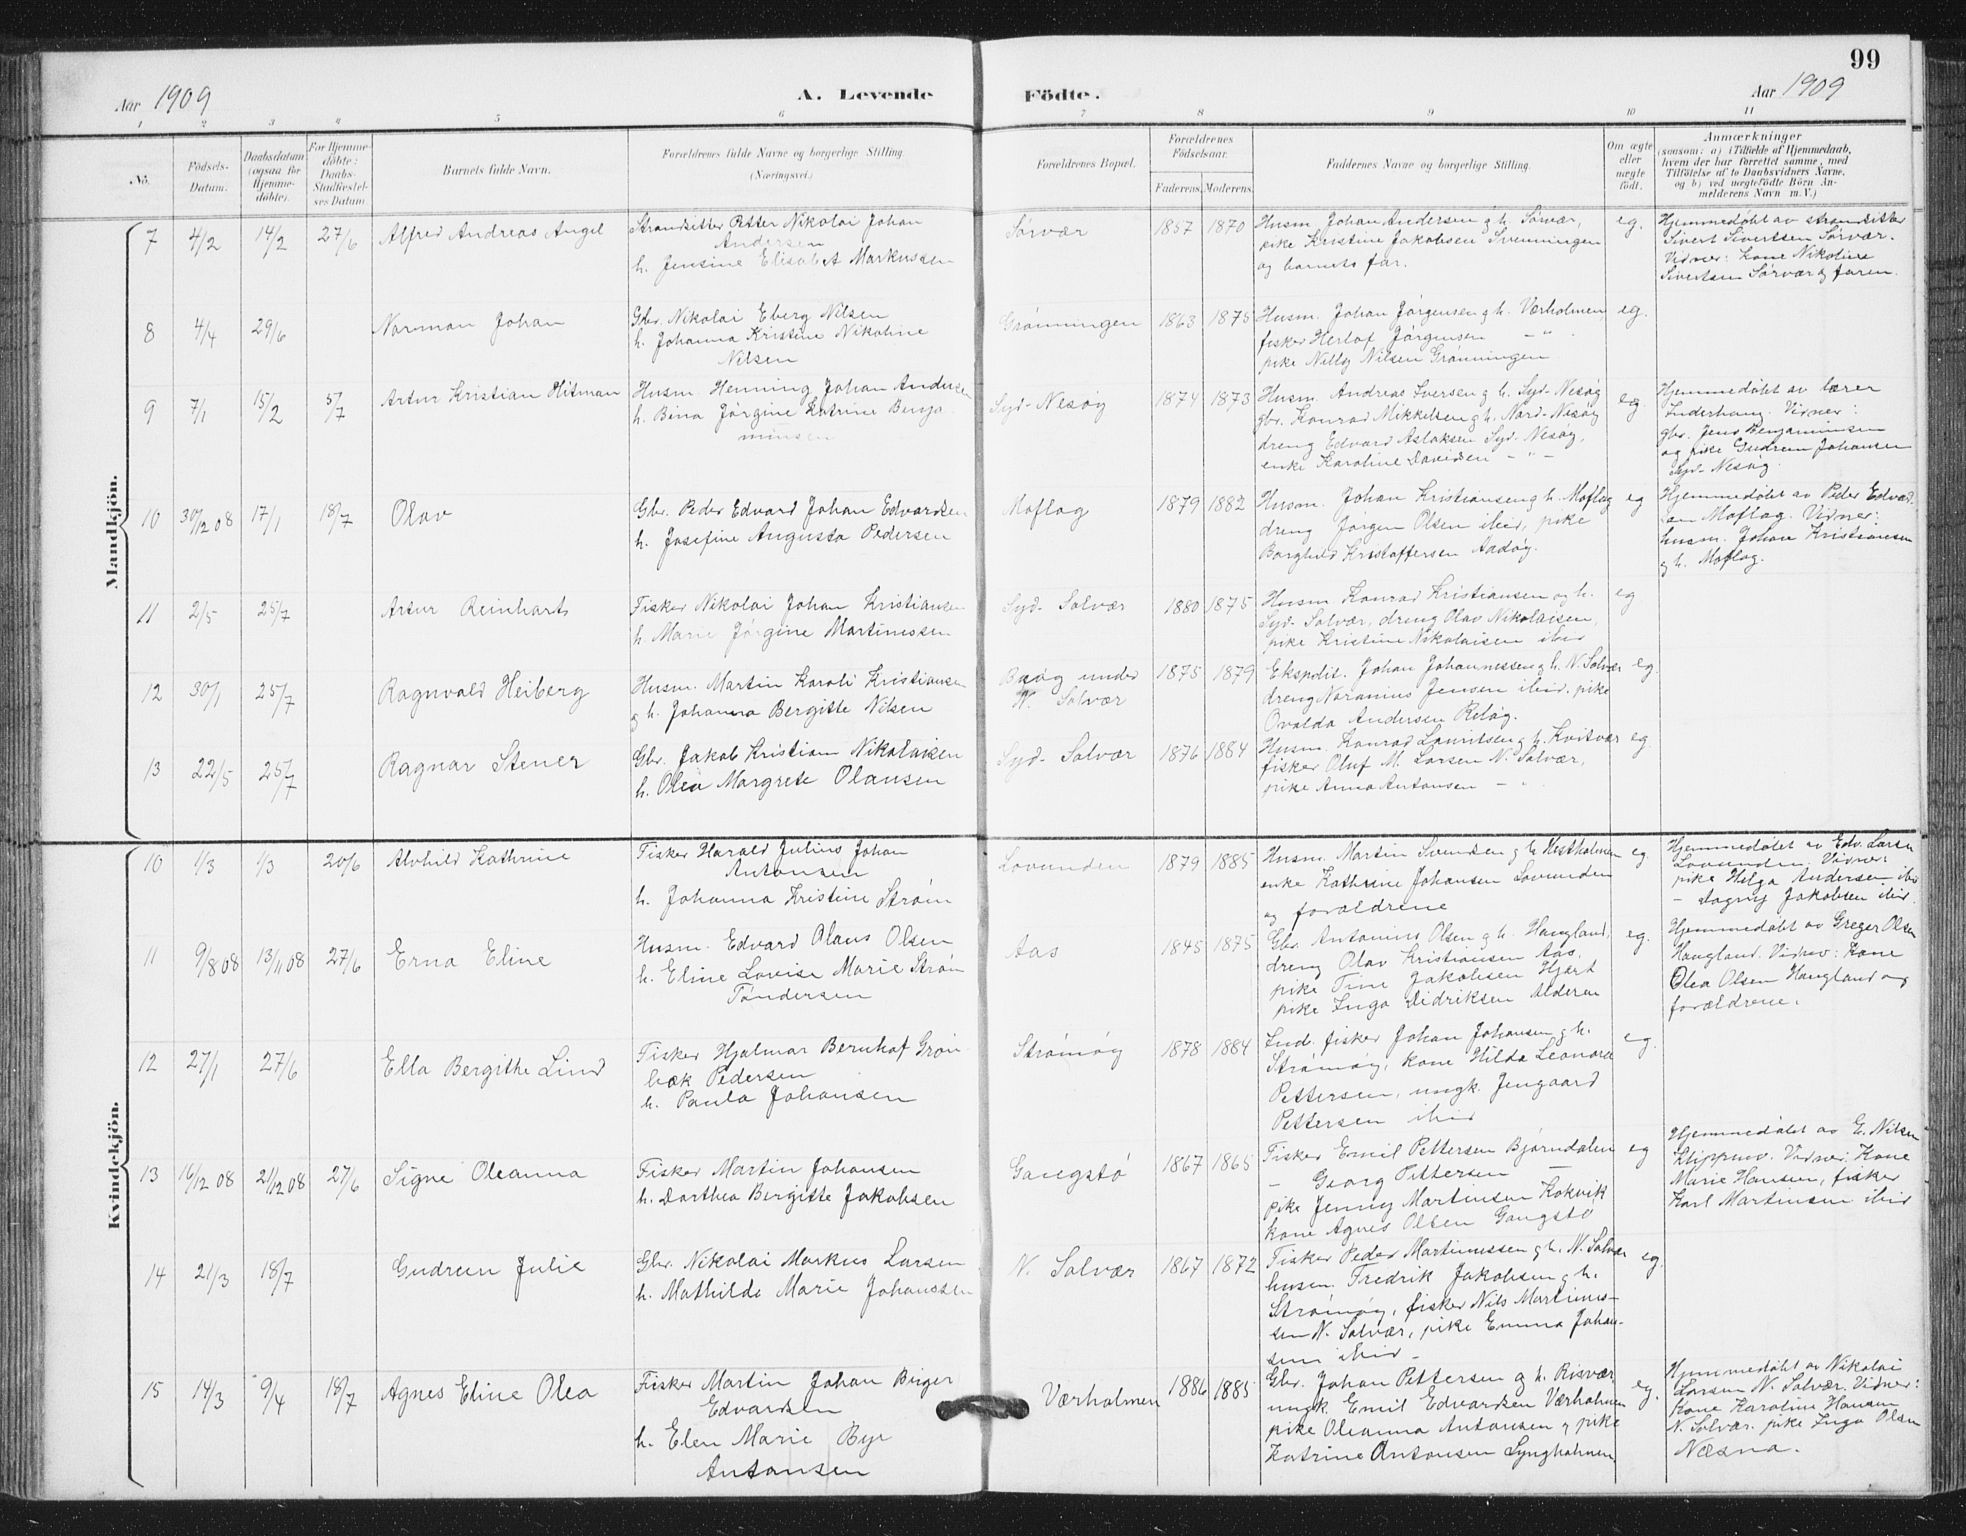 99
Aar 1909
A. Levende Födte.
Aar 1909
1 2 3 4 5 6 7 8 9 10 11
No.
Födsels-Datum.
Daabsdatum (ogsaa for Hjemmedöbte).
For Hjemmedöbte: Daabs-Stadfæstelses Datum
Barnets fulde Navn.
Forældrenes fulde Navne og borgerlige Stilling (Næringsvei.)
Forældrenes Bopæl.
Forældrenes Födselsaar.
Faderens. Moderens.
Faddernes Navne og borgerlige Stilling.
Om ægte eller uægte født.
Anmærkninger
(saasom: a) i Tilfælde af Hjemmedaab, hvem der har forrettet samme, med Tilföielse af to Daabsvidners Navne, og b) ved uægtefödte Börn Anmelderens Navn m. V.)
Mandkjön.
7 4/2 14/2 27/6 Alfred Andreas Angel
Strandsitter Petter Nikolai Johan
Andersen
h. Jensine Elisabet Markussen
Sørvær 1857 1870
Husm. Johan Andersen g h. Sørvær,
pike Kristine Jakobsen Svenningen
og barnets far.
eg.
Hjemmedøbt av strandsitter
Sivert Sivertsen Sørvær.
Vidner: Kone Nikoline
Sivertsen Sørvær og faren.
8 4/4 29/6 Norman Johan
Gbr. Nikolai Eberg Nilsen
h. Johanna Kristine Nikoline
Nilsen
Grønningen 1863 1875
Husm. Johan Jørgensen g h. Værholmen,
fisker Herlof Jørgensen — " —
pike Nelly Nilsen Grønningen
eg.
9 7/1 15/2 5/7 Artur Kristian Hitman
Husm. Henning Johan Andersen
h. Bina Jørgine Katrine Benja-
minsen
Syd-Nesøy 1874 1873
Husm. Andreas Iversen g h. Syd-Nesøy
gbr. Konrad Mikkelsen g h. Nord-Nesøy
dreng Edvard Aslaksen Syd-Nesøy,
enke Karoline Davidsen — " —
eg.
Hjemmedøbt av lærer
Vidner:
gbr. Jens Benjaminsen
og pike Gudrun Johansen
Syd-Nesøy.
10 30/12 08 17/1 18/7 Olav
Gbr. Peder Edvard Johan Edvardsen
h. Josefine Augusta Pedersen
Moflag 1879 1882
Husm. Johan Kristiansen g h. Moflag
dreng Jørgen Olsen ibid, pike
Borghild Kristoffersen
eg
Hjemmedøbt av Peder Edvard-
sen Moflag. Vidner:
husm. Johan Kristiansen
g h. Moflag.
11 2/5 25/7 Artur Reinharts
Fisker Nikolai Johan Kristiansen
h. Marie Jørgine Martinussen
Syd-Solvær 1880 1875
Husm. Konrad Kristiansen og h.
Syd-Solvær, dreng Olav Nikolaisen,
pike Kristine Nikolaisen ibid
eg
12 30/1 25/7 Ragnvald Heiberg
Husm. Martin Karoli Kristiansen
g h. Johanna Bergitte Nilsen
under
N. Solvær
1875 1879
Ekspedit. Johan Johannessen g h. N. Solvær
dreng Noranius Jensen ibid, pike
Ovalda Andersen Reløy.
eg.
13 22/5 25/7 Ragnar Stener
Gbr. Jakob Kristian Nikolaisen
h. Olea Margrete Olausen
Syd-Solvær 1876 1884
Husm. Konrad Lauritsen g h. Kvitvær
fisker Oluf M. Larsen N. Solvær,
pike Anna Antonsen — " —
eg.
Kvindekjön.
10 1/3 1/3 20/6 Alvhild Kathrine
Fisker Harald Julius Johan
Antonsen
h. Johanna Kristine Strøm
Lovunden 1879 1885
Husm. Martin Svendsen g h Hestholmen
enke Kathrine Johansen Lovunden
og forældrene
eg.
Hjemmedøbt av Edv. Larsen
Lovunden. Vidner:
pike Helga Andersen ibid
— Dagny Jakobsen ibid.
11 9/8 08 13/11 08 27/6 Erna Eline
Husm. Edvard Olaus Olsen
h. Eline Lovise Marie Strøm
Tøndersen
Aas 1845 1875
Gbr. Antonius Olsen g h. Haugland,
dreng Olav Kristiansen Aas,
pike Tine Jakobsen Hjart
pike Inga Didriksen Alderen
eg.
Hjemmedøbt av Greger Olsen
Haugland. Vidner: Kone
Olea Olsen Haugland og
forældrene.
12 27/1 27/6 Ella Bergithe Lind
Fisker Hjalmar Bernhof Grøn-
bæk Pedersen
h. Paula Johansen
Strømøy 1878 1884
Ind. fisker Johan Johansen g h.
Strømøy, kone Hilda Leonore
Pettersen, ungk. Jengaard
Pettersen ibid
eg.
13 16/12 08 21/12 08 27/6 Signe Oleanna
Fisker Martin Johansen
h. Dorthea Bergitte Jakobsen
Gangstø 1867 1865
Fisker Emil Pettersen Bjørndalen
— Georg Pettersen —
pike Jenny Martinsen Kokvik
kone Agnes Olsen Gangstø
eg
Hjemmedøbt av E. Nilsen
Vidner: Kone
Marie Hansen, fisker
Karl Martinsen ibid
14 21/3 18/7 Gudrun Julie
Gbr. Nikolai Markus Larsen
h. Mathilde Marie Johanssen
N. Solvær 1867 1872
Fisker Peder Martinussen g h. N. Solvær
husm. Fredrik Jakobsen g h.
Strømøy, fisker Nils Martinus-
sen N. Solvær, pike Emma Johan-
sen ibid —
eg.
15 14/3 9/4 18/7 Agnes Eline Olea
Fisker Martin Johan Birger
Edvardsen
h. Elen Marie Bye
Antonsen
Værholmen 1886 1885
Gbr. Johan Pettersen g h. Risvær
ungk. Emil Edvardsen Værholmen
pike Oleanna Antonsen g pike
Katrine Antonsen Lyngholmen
eg.
Hjemmedøbt av Nikolai
Larsen N. Solvær. Vidner:
Kone Karoline Hansen
N. Solvær. pike Inga Olsen
Næsna.